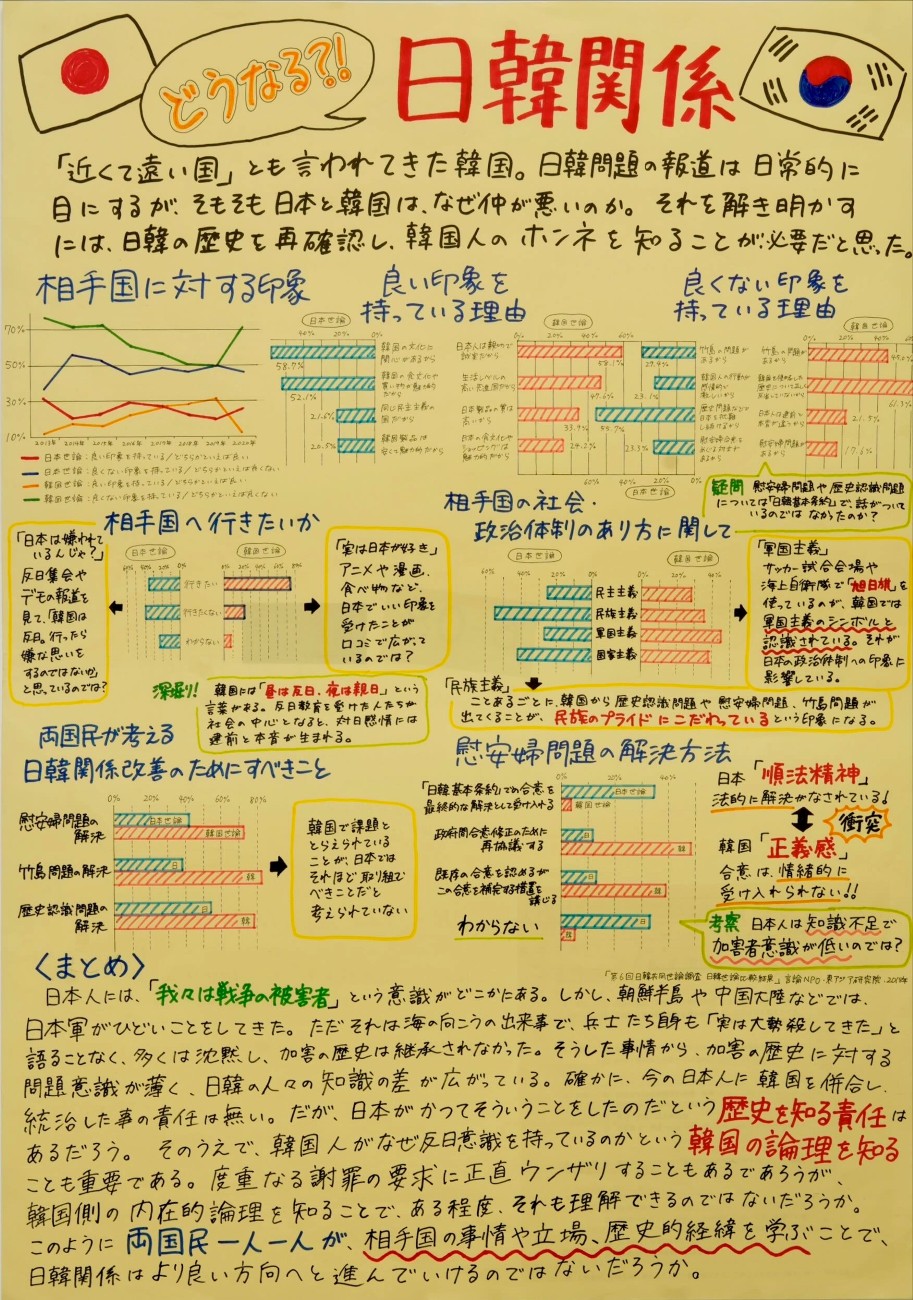 どうなる?!
日韓関係
「近くて遠い国」とも言われてきた韓国。日韓問題の報道は日常的に
目にするが、そもそも日本と韓国は、なぜ仲が悪いのか。それを解き明かす
には、日韓の歴史を再確認し、韓国人のホンネを知ることが必要だと思った。
相手国に対する印象
70%
50%
30%
10%
2013年
2020年
日本世論:良い印象を持っている/どちらかといえば良い
日本世論:良くない印象を持っている/どちらかといえば良くない
韓国世論:良い印象を持っている/どちらかといえば良い
韓国世論:良くない印象を持っている/どちらかといえば良くない
良い印象を
持っている理由
日本世論
40% 20% 0%
韓国の文化に
関心があるから
58.9%
韓国の食文化や
買い物が魅力的
だから
52.1%
同じ民主主義の
国だから
21.6%
韓国製品は
安くて魅力的だから
20.5%
韓国世論
0% 20% 40% 60%
日本人は親切で
誠実だから
58.1%
生活レベルの
高い先進国だから
47.6%
日本製品の質は
高いから
33.9%
日本の食文化や
ショッピングは
魅力的だから
24.2%
良くない印象を
持っている理由
竹島の問題が
あるから
29.9%
韓国人の行動が
感情的で
激しいから
23.1%
歴史問題などで
日本を批判
し続けるから
55.7%
慰安婦合意を
めぐる対立が
あるから
23.5%
60% 40% 20% 0%
日本世論
韓国世論
0% 20% 40%
竹島の問題が
あるから
45.0%
61.3%
日本人は建前と
本音が違うから
21.5%
慰安婦問題が
あるから
17.6%
疑問 慰安婦問題や歴史認識問題
については「日韓基本条約」で、話がついて
いるのではなかったのか?
相手国へ行きたいか
「日本は嫌われて
いるんじゃ?」
反日集会や
デモの報道を
見て、「韓国は
反日。行ったら
嫌な思いを
するのではないか」
と思っているのでは?
日本世論
韓国世論
行きたい
行きたくない
わからない
「実は日本が好き」
アニメや漫画、
食べ物など、
日本でいい印象を
受けたことが
口コミで広がって
いるのでは?
深堀り! 韓国には「昼は反日、夜は親日」という
言葉がある。反日教育を受けた人たちが
社会の中心となると、対日感情には
建前と本音が生まれる。
相手国の社会・
政治体制のあり方に関して
日本世論
韓国世論
民主主義
民族主義
軍国主義
国家主義
「軍国主義」
サッカー試合会場や
海上自衛隊で「旭日旗」を
使っているのが、韓国では
軍国主義のシンボルと
認識されている。それが
日本の政治体制への印象に
影響している。
「民族主義」
ことあるごとに、韓国から歴史認識問題や慰安婦問題、竹島問題が
出てくることが、民族のプライドにこだわっているという印象になる。
両国民が考える
日韓関係改善のためにすべきこと
0% 20% 40% 60% 80%
慰安婦問題の
解決
日本世論
韓国世論
竹島問題の解決
日
韓
歴史認識問題の
解決
日
韓
韓国で課題と
とらえられている
ことが、日本では
それほど取り組む
べきことだと
考えられていない
慰安婦問題の解決方法
0% 20% 40%
「日韓基本条約」での合意を
最終的な解決として受け入れる
日本世論
韓国世論
政府間合意修正のために
再協議する
日
韓
既存の合意を認めるが
この合意を補完する措置を
講じる
日
韓
わからない
日
韓
日本「順法精神」
法的に解決がなされている!
衝突
韓国「正義感」
合意は、情緒的に
受け入れられない!!
考察 日本人は知識不足で
加害者意識が低いのでは?
〈まとめ〉
日本人には、「我々は戦争の被害者」という意識がどこかにある。しかし、朝鮮半島や中国大陸などでは、
日本軍がひどいことをしてきた。ただそれは海の向こうの出来事で、兵士たち自身も「実は大勢殺してきた」と
語ることなく、多くは沈黙し、加害の歴史は継承されなかった。そうした事情から、加害の歴史に対する
問題意識が薄く、日韓の人々の知識の差が広がっている。確かに、今の日本人に韓国を併合し、
統治した事の責任は無い。だが、日本がかつてそういうことをしたのだという歴史を知る責任は
あるだろう。そのうえで、韓国人がなぜ反日意識を持っているのかという韓国の論理を知る
ことも重要である。度重なる謝罪の要求に正直ウンザリすることもあるであろうが、
韓国側の内在的論理を知ることで、ある程度、それも理解できるのではないだろうか。
このように両国民一人一人が、相手国の事情や立場、歴史的経緯を学ぶことで、
日韓関係はより良い方向へと進んでいけるのではないだろうか。